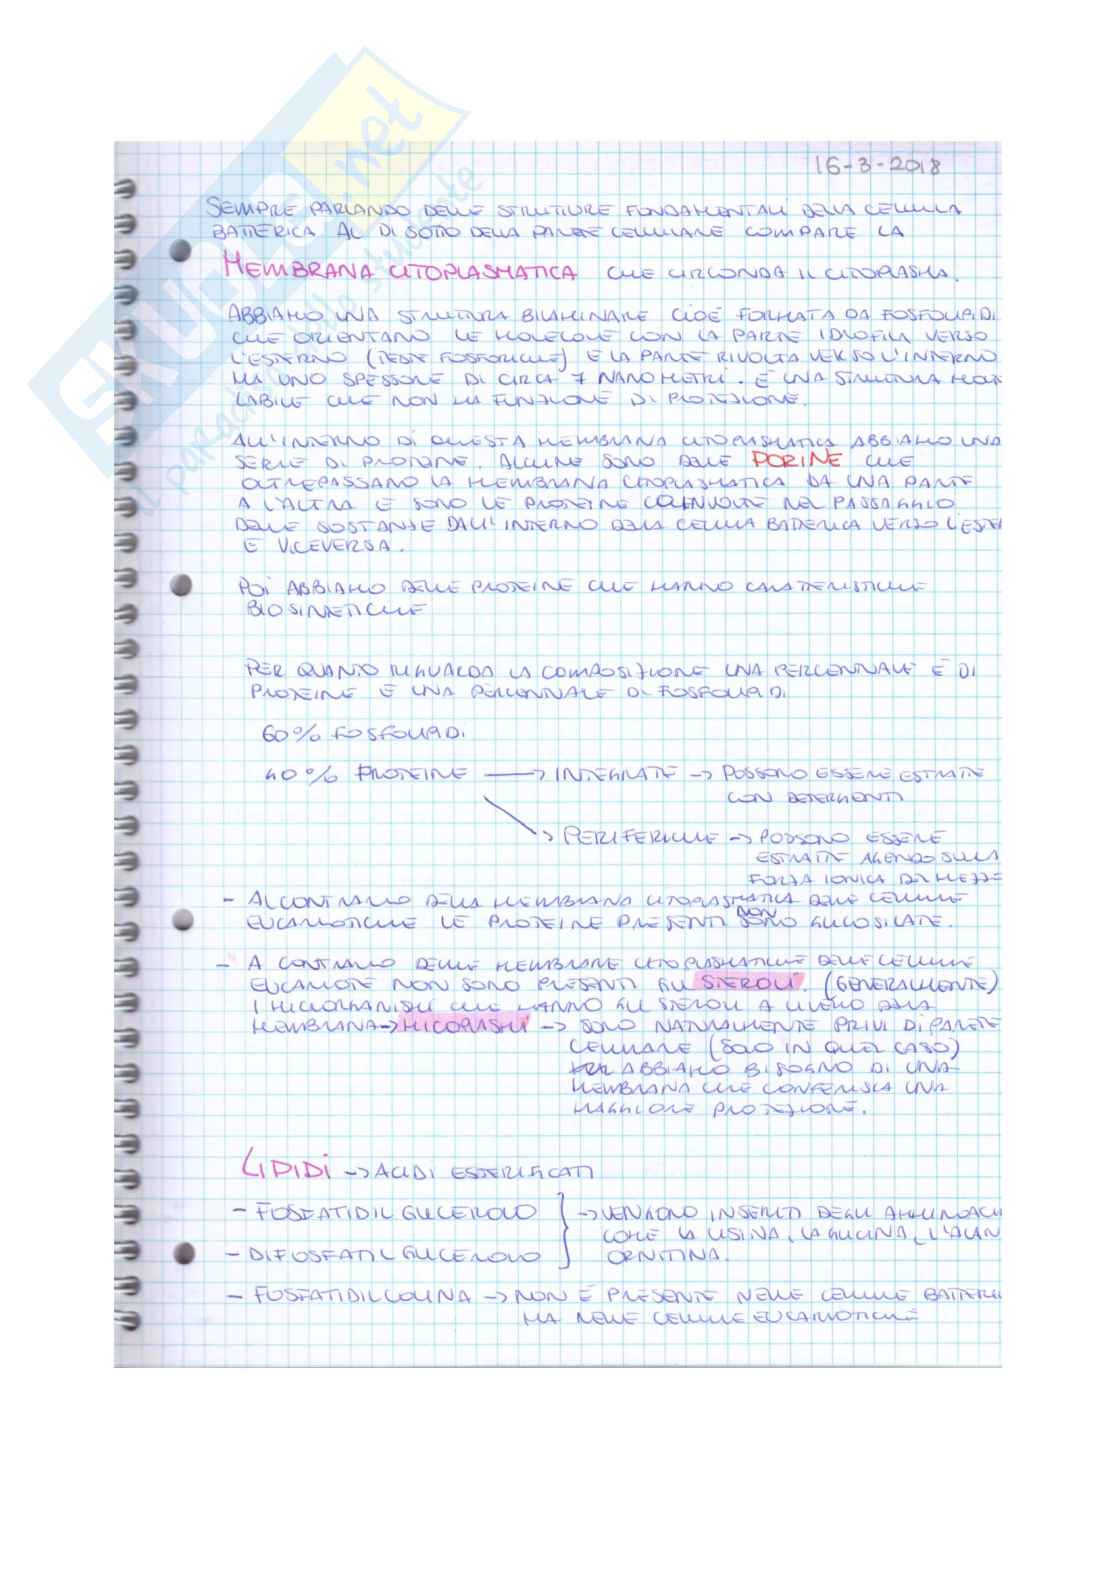 SKUOLA.net
il paradiso dello studente
16-3-2018
SEMPRE PARLANDO DELLE STRUTTURE FONDAMENTALI DELLA CELLULA
BATTERICA AL DI SOTTO DELLA PARETE CELLULARE COMPARE LA
MEMBRANA CITOPLASMATICA CHE CIRCONDA IL CITOPLASMA.
ABBIAMO UNA STRUTTURA BILAMINARE CIOÈ FORMATA DA FOSFOLIPIDI
CHE ORIENTANO LE MOLECOLE CON LA PARTE IDROFILA VERSO
L'ESTERNO (TESTE FOSFORICHE) E LA PARTE RIVOLTA VERSO L'INTERNO
HA UNO SPESSORE DI CIRCA 7 NANOMETRI. È UNA STRUTTURA MOLT
LABILE CHE NON HA FUNZIONE DI PROTEZIONE.
ALL'INTERNO DI QUESTA MEMBRANA CITOPLASMATICA ABBIAMO UNA
SERIE DI PROTEINE. ALCUNE SONO DELLE PORINE CHE
OLTREPASSANO LA MEMBRANA CITOPLASMATICA DA UNA PARTE
A L'ALTRA E SONO LE PROTEINE COINVOLTE NEL PASSAGGIO
DELLE SOSTANZE DALL'INTERNO DELLA CELLULA BATTERICA VERSO L'ESTE
E VICEVERSA.
POI ABBIAMO DELLE PROTEINE CHE HANNO CARATTERISTICHE
BIOSINTETICHE
PER QUANTO RIGUARDA LA COMPOSIZIONE UNA PERCENTUALE È DI
PROTEINE E UNA PERCENTUALE DI FOSFOLIPIDI
60% FOSFOLIPIDI
40% PROTEINE → INTEGRATE → POSSONO ESSERE ESTRATTE
CON DETERGENTI
→ PERIFERICHE → POSSONO ESSERE
ESTRATTE AGENDO SULLA
FORZA IONICA DEL MEZZO
- AL CONTRARIO DELLA MEMBRANA CITOPLASMATICA DELLE CELLULE
EUCARIOTICHE LE PROTEINE PRESENTI NON SONO GLICOSILATE.
- A CONTRARIO DELLE MEMBRANE CITOPLASMATICHE DELLE CELLULE
EUCARIOTE NON SONO PRESENTI GLI STEROLI. (GENERALMENTE)
I MICRORGANISMI CHE HANNO GLI STEROLI A LIVELLO DELLA
MEMBRANA → MICOPLASMI → SONO NATURALMENTE PRIVI DI PARETE
CELLULARE (SOLO IN QUEL CASO)
ABBIAMO BISOGNO DI UNA
MEMBRANA CHE CONFERISCA UNA
MAGGIORE PROTEZIONE.
LIPIDI → ACIDI ESTERIFICATI
- FOSFATIDILGLICEROLO } → VENGONO INSERITI DEGLI AMMINOACI
COME LA LISINA, LA GLICINA, L'ALAN
- DIFOSFATILGLICEROLO ORNITINA.
- FOSFATIDILCOLINA → NON È PRESENTE NELLE CELLULE BATTERICH
MA NELLE CELLULE EUCARIOTICHE